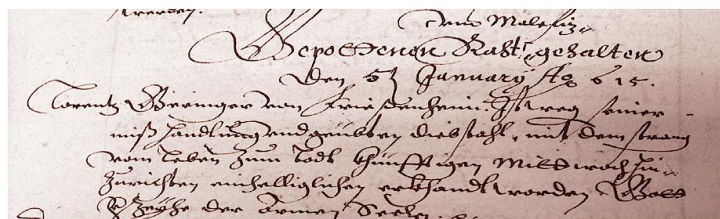 werden.
Malefiz
Gepottenen Raht gehalten
Den January Ao 615.
Lorentz Geringer von Frießenheim Ist weg seiner
mißhandlung und geübten diebstahl, mit dem strang
vom leben zum todt khünfftigen Mittwoch hin
zurichten einhelliglichen erkhandt worden Gott
der Armen Seelen.